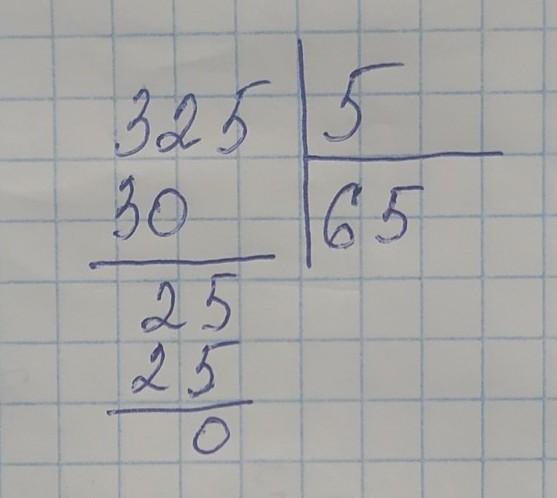 325 5
30 65
25
25
0